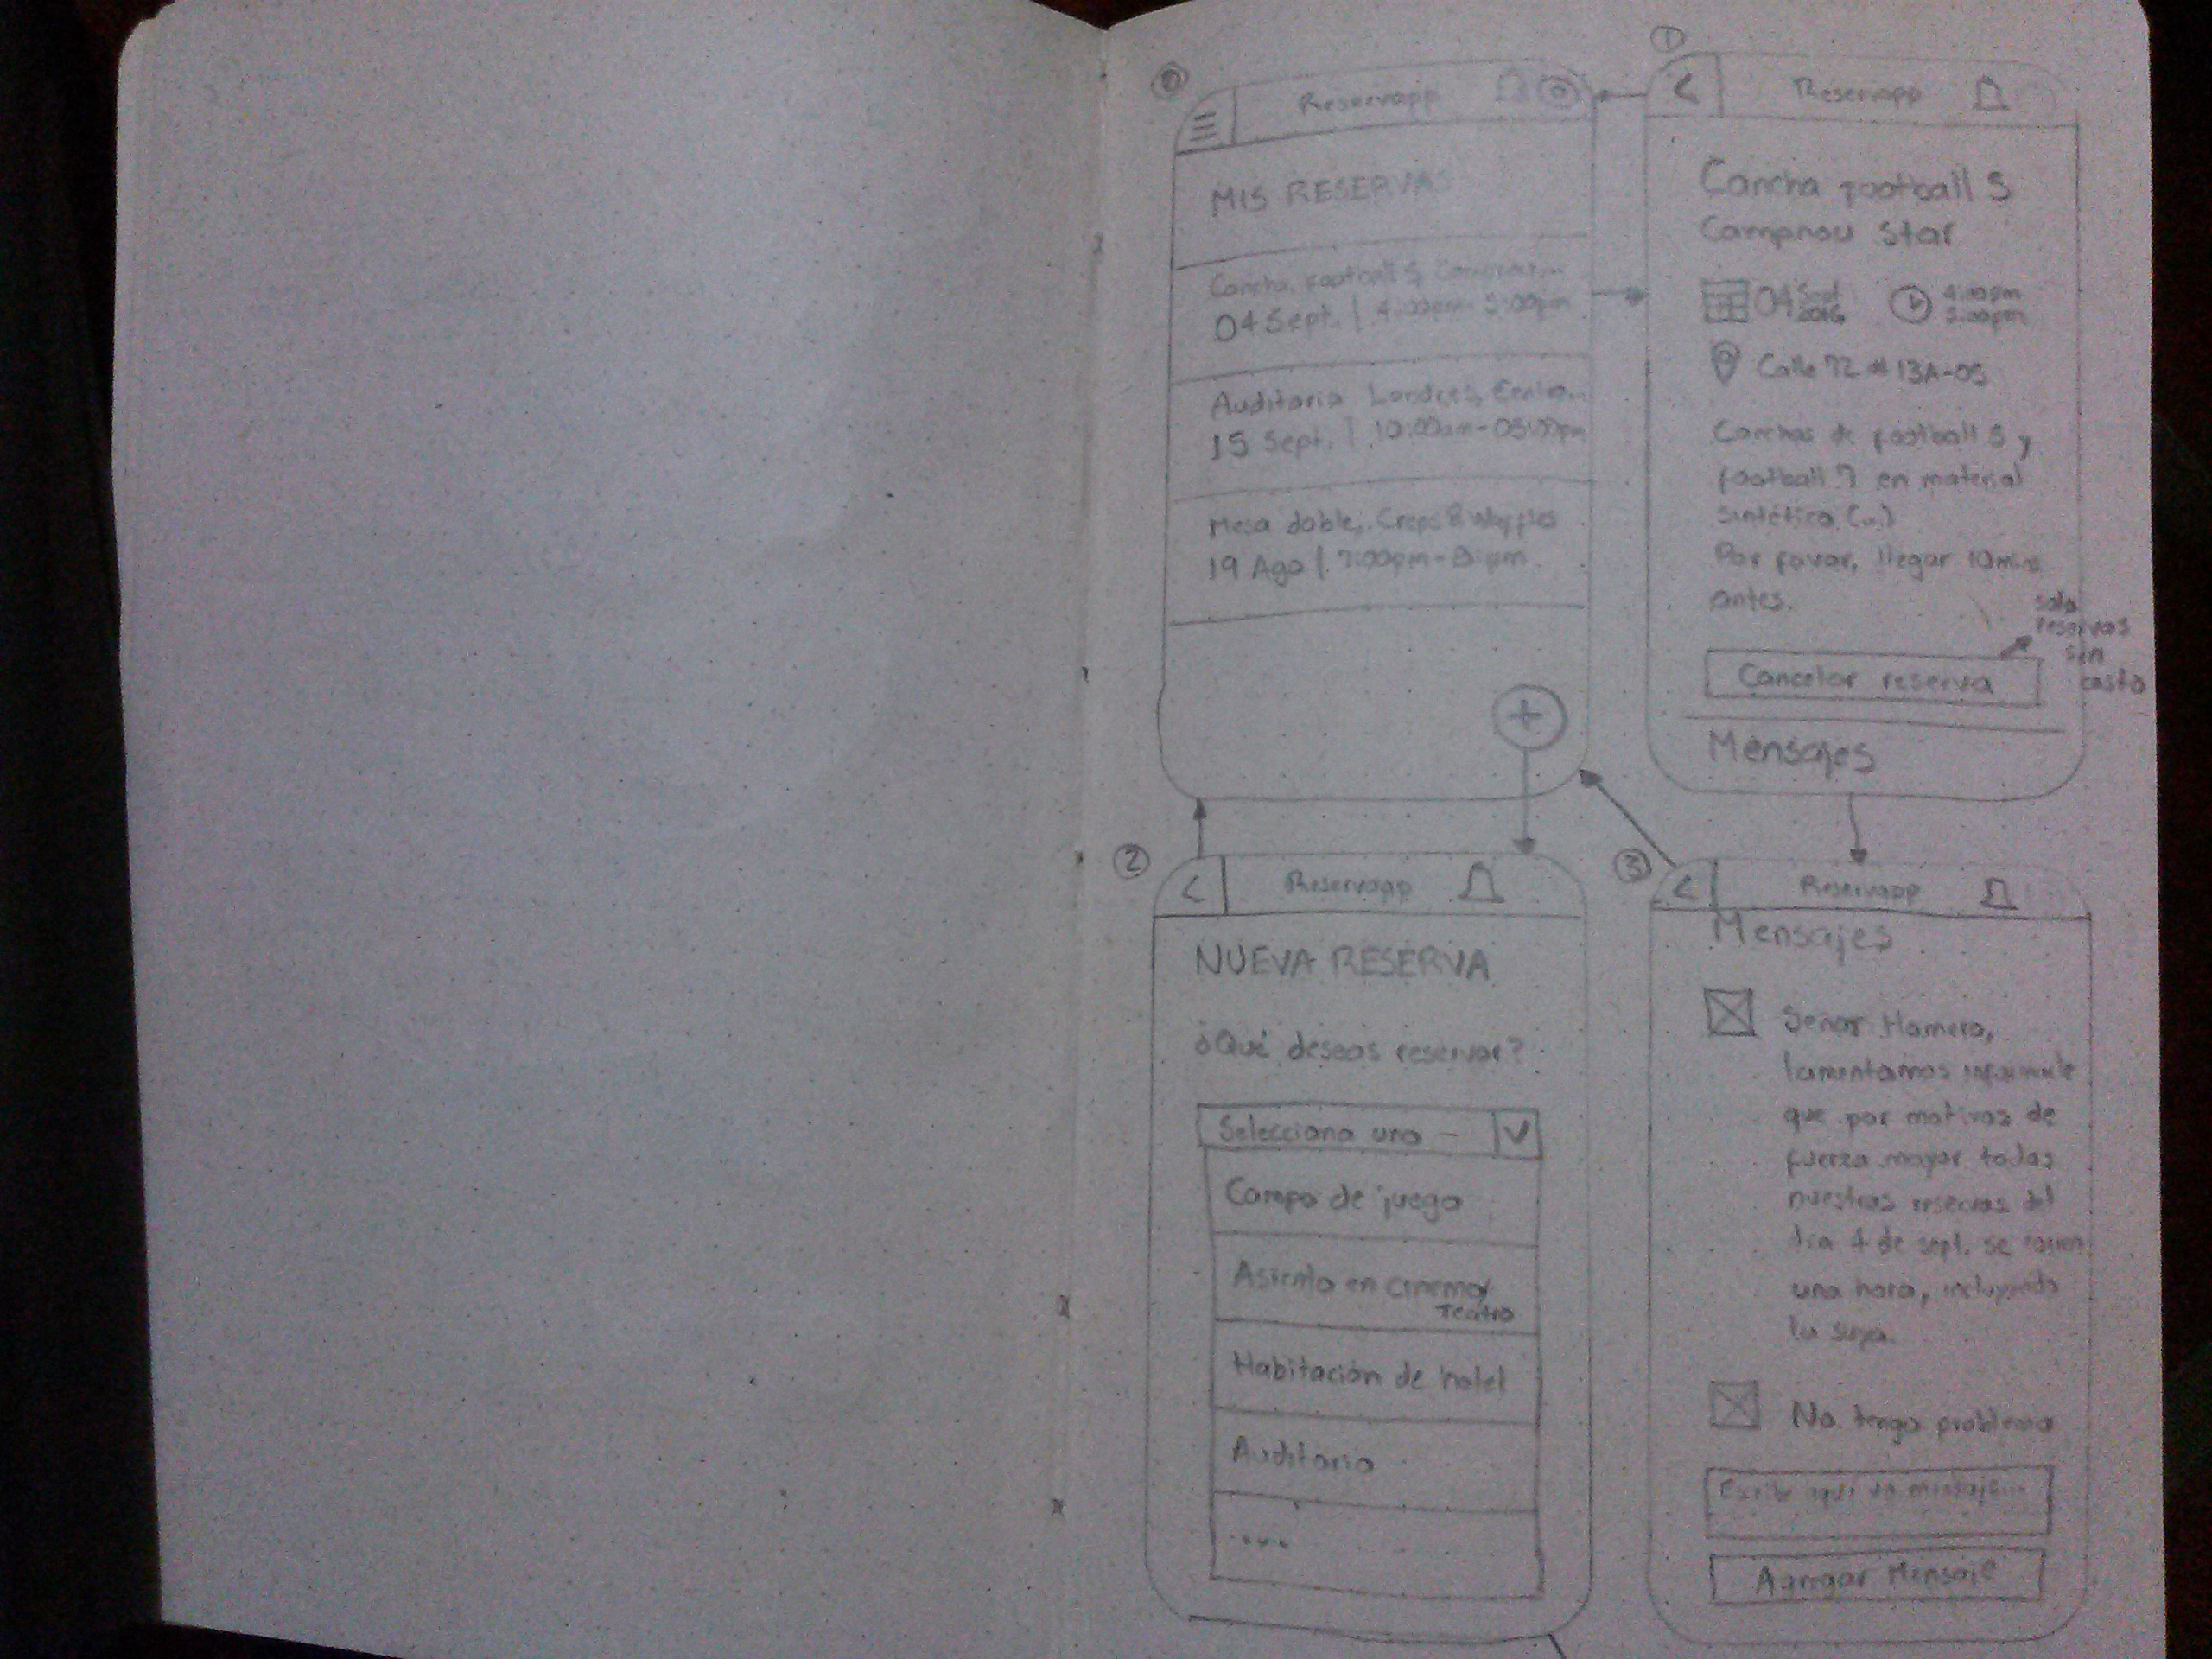 0
Reservapp
MIS RESERVAS
Cancha football 5,
04 Sept. | 4:00pm - 5:00pm
Auditorio Londres, Centro...
15 Sept. | 10:00am - 05:00pm
Mesa doble, Creps & Waffles
19 Ago | 7:00pm - 8: pm
+
1
<
Reservapp
Cancha football 5
Campnou Star
04 Sept 2016
4:00pm
5:00pm
Calle 72 # 13A-05
Canchas de football 5 y
football 7 en material
sintético (...)
Por favor, llegar 10 mins
antes.
solo
reservas
sin
costo
Cancelar reserva
Mensajes
2
<
Reservapp
NUEVA RESERVA
¿Qué deseas reservar?
Selecciona uno -
Campo de juego
Asiento en cinema/
Teatro
Habitación de hotel
Auditorio
.....
3
<
Reservapp
Mensajes
Señor Homero,
lamentamos informarle
que por motivos de
fuerza mayor todas
nuestras reservas del
día 4 de sept. se
una hora, incluyendo
la suya.
No tengo problema
Escribe aquí un mensaje...
Agregar Mensaje